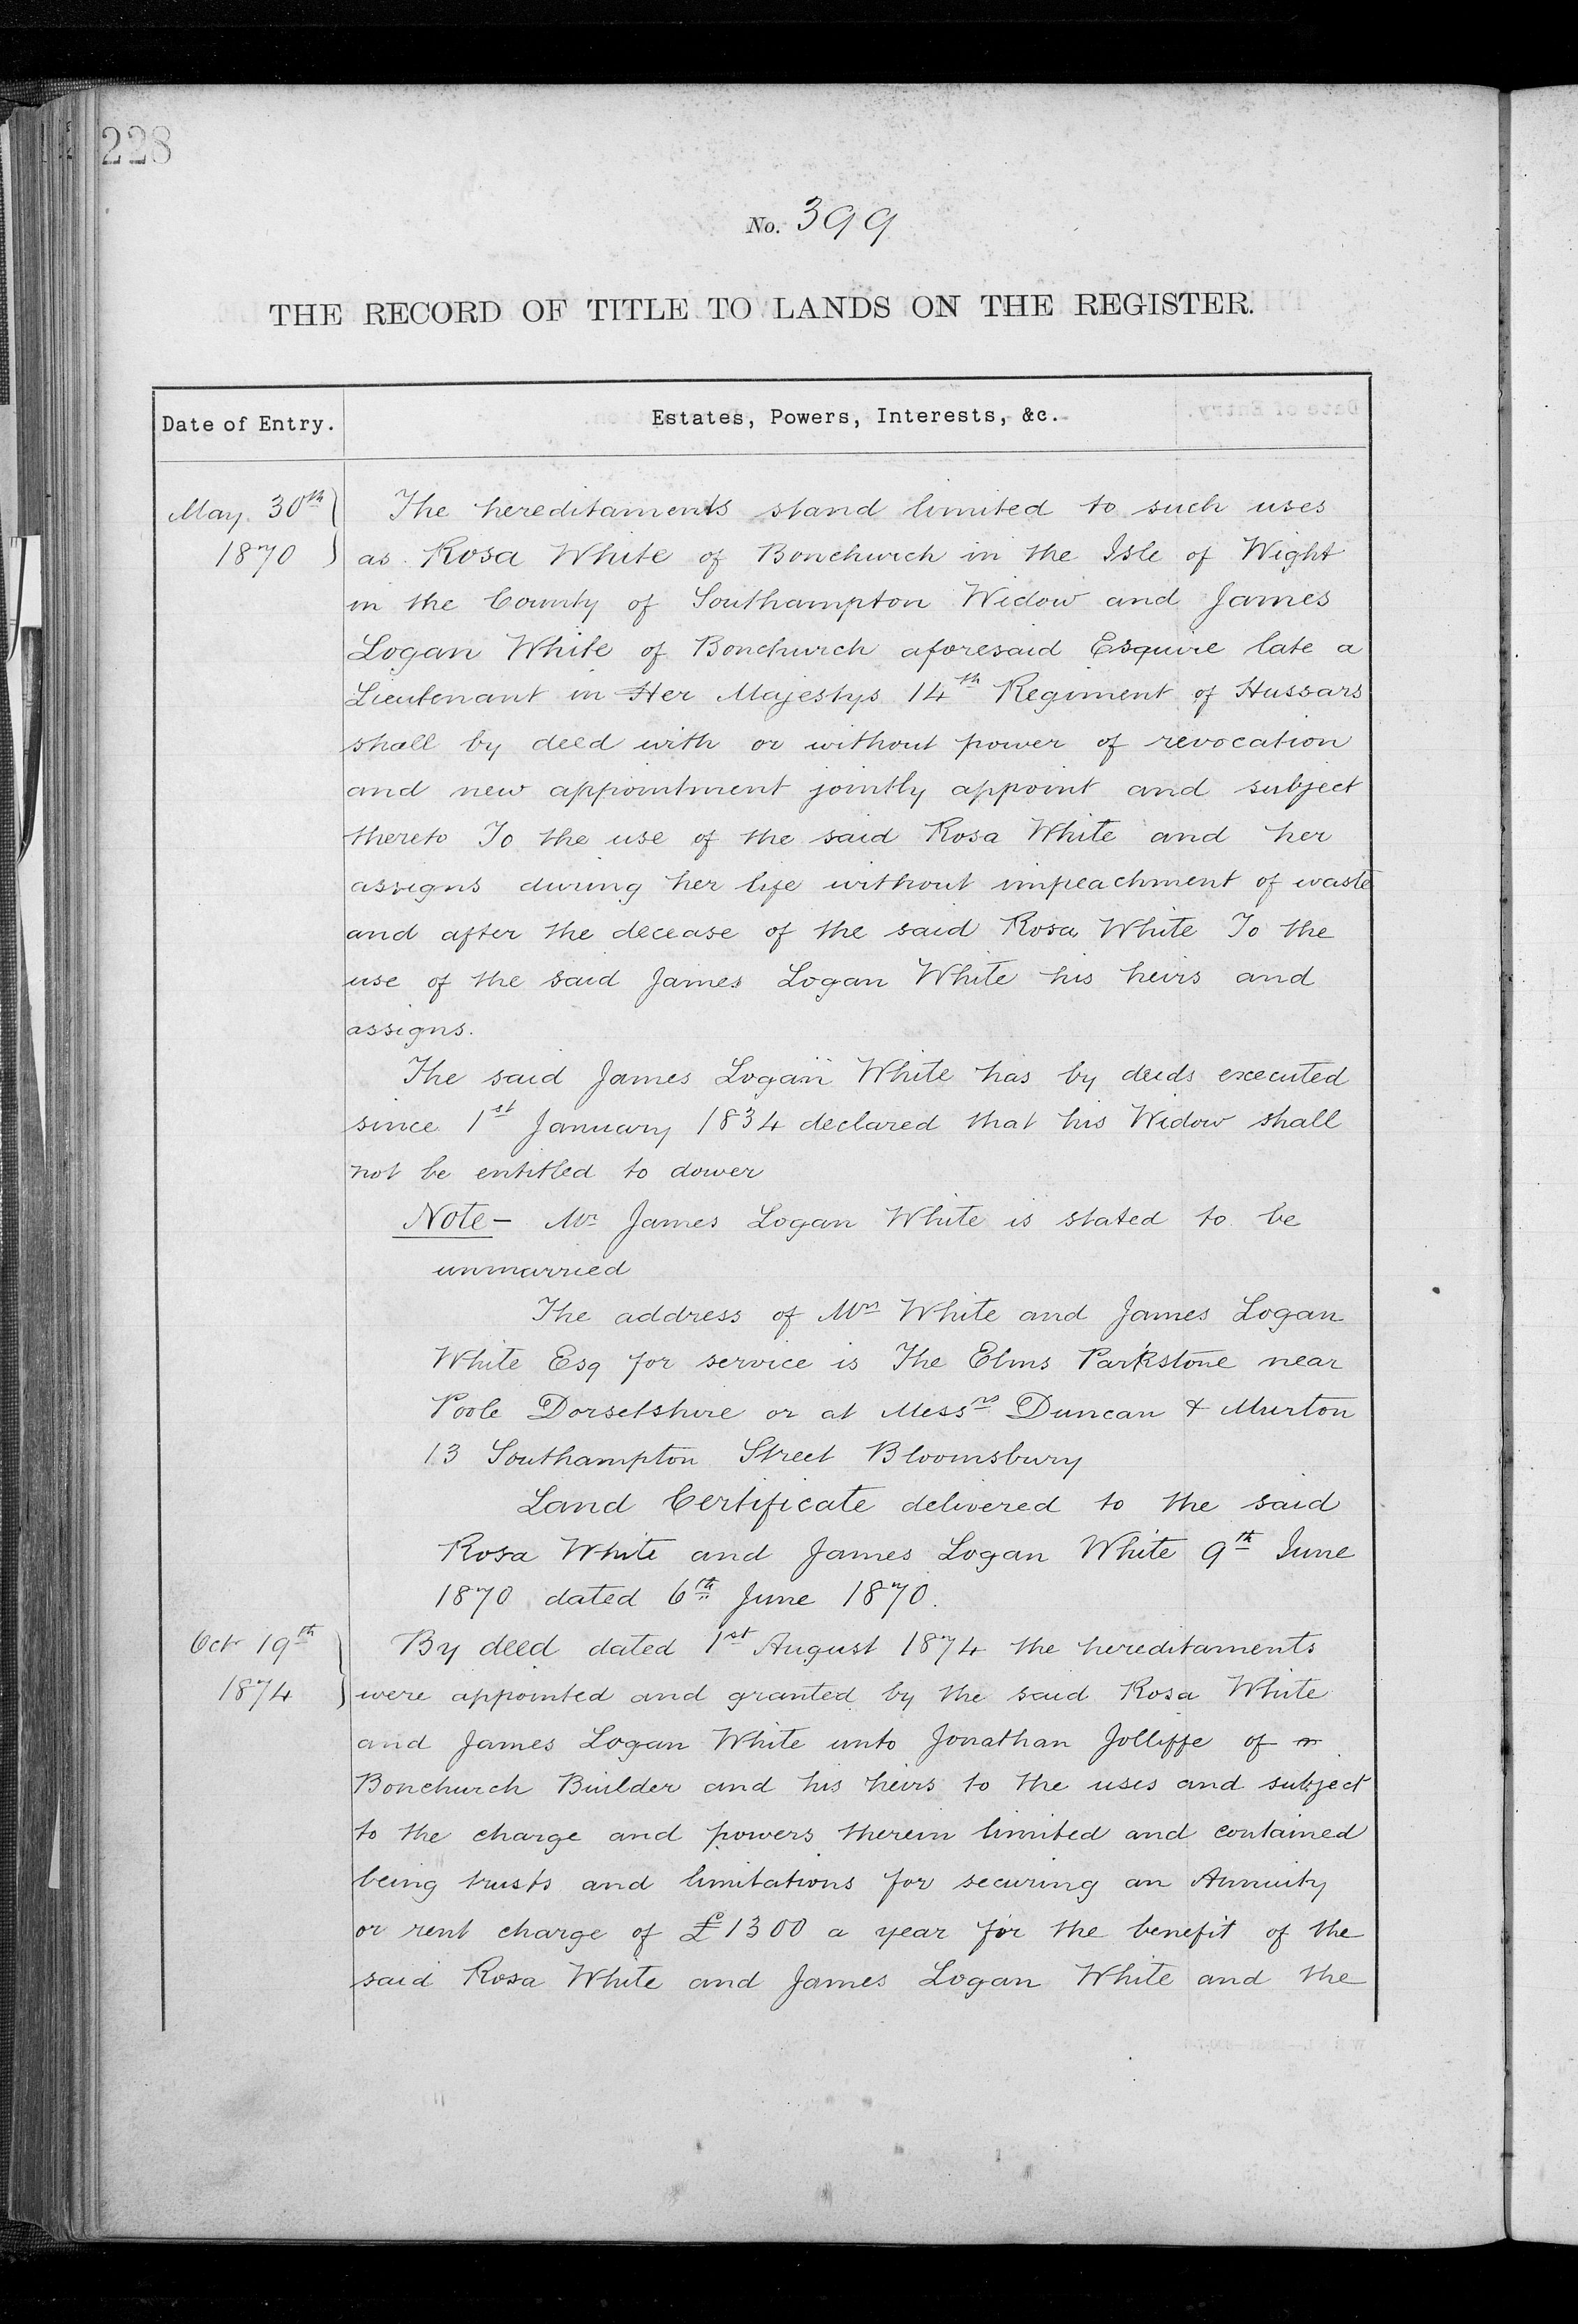 228
No. 399
THE RECORD OF TITLE TO LANDS ON THE REGISTER.
Date of Entry.
Estates, Powers, Interests, &c.
May 30th
1870
The hereditaments stand limited to such uses
as Rosa White of Bonchurch in the Isle of Wight
in the County of Southampton Widow and James
Logan White of Bonchurch aforesaid Esquire late a
Lieutenant in Her Majestys 14th Regiment of Hussars
shall by deed with or without power of revocation
and new appointment jointly appoint and subject
thereto To the use of the said Rosa White and her
assigns during her life without impeachment of waste
and after the decease of the said Rosa White To the
use of the said James Logan White his heirs and
assigns.
The said James Logan White has by deeds executed
since 1st January 1834 declared that his Widow shall
not be entitled to dower
Note - Mr James Logan White is stated to be
unmarried
The address of Mrs White and James Logan
White Esq for service is The Elms Parkstone near
Poole Dorsetshire or at Messrs Duncan & Murton
13 Southampton Street Bloomsbury
Land Certificate delivered to the said
Rosa White and James Logan White 9th June
1870 dated 6th June 1870.
Oct 19th
1874
By deed dated 1st August 1874 the hereditaments
were appointed and granted by the said Rosa White
and James Logan White unto Jonathan Jolliffe of
Bonchurch Builder and his heirs to the uses and subject
to the charge and powers therein limited and contained
being trusts and limitations for securing an Annuity
or rent charge of £1300 a year for the benefit of the
said Rosa White and James Logan White and the